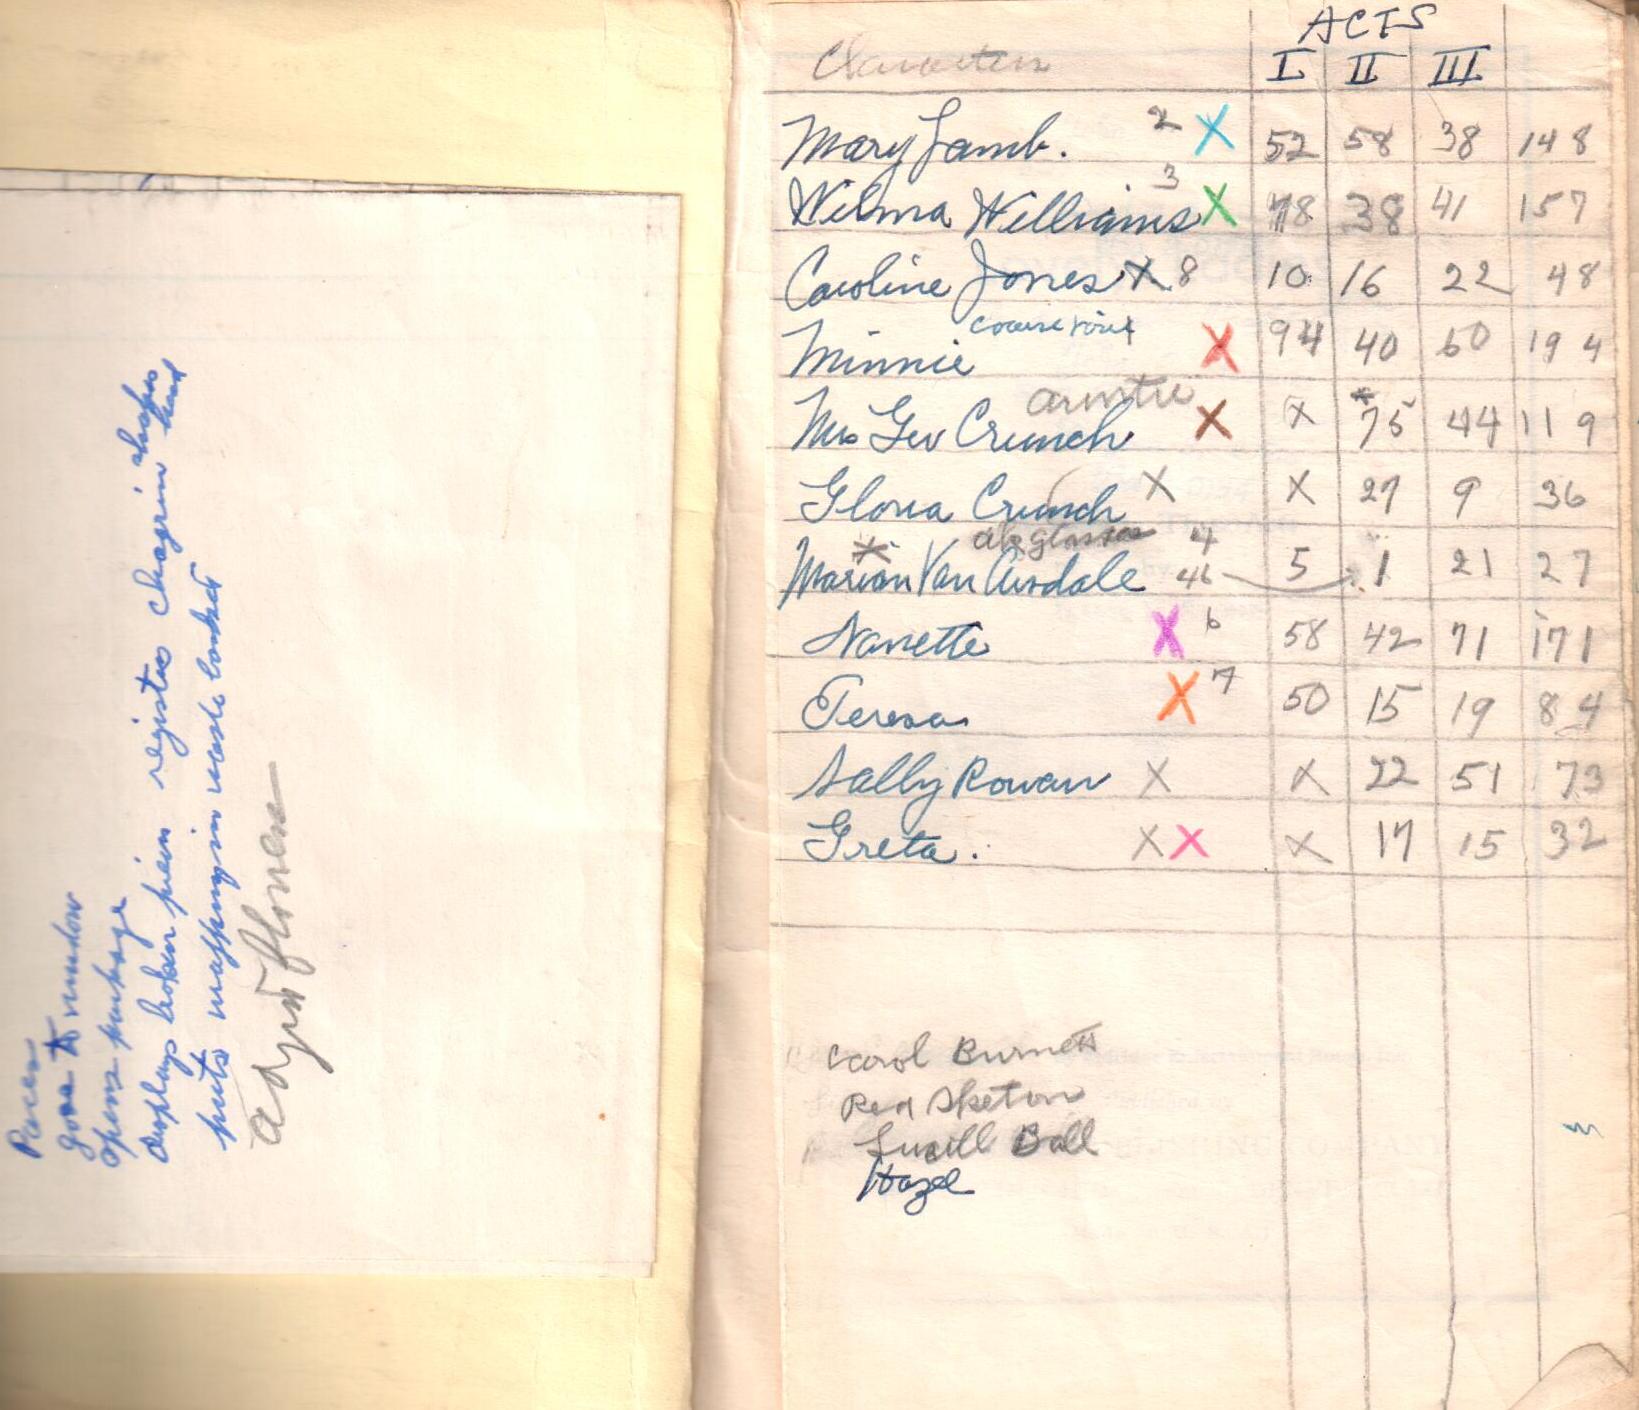 Paces
goes to window
opens package
displays broken piece registers chagrin shakes head
puts wrapping in waste basket
adjust flowers
ACTS
Characters I II III
Mary Lamb. 2 X 52 58 38 148
3
Wilma Williams X 78 38 41 157
Caroline Jones X 8 10 16 22 48
coarse voice
Minnie X 94 40 60 194
auntie
Mrs Geo Crunch X X 75 44 119
Gloria Crunch X X 27 9 36
glasses 4
Marion Van Arsdale 46 5 1 21 27
Nanette X 6 58 42 71 171
Teresa X 7 50 15 19 84
Sally Rowan X X 22 51 73
Greta. X X X 17 15 32
Carol Burnett
Red Skelton
Lucill Ball
Hazel